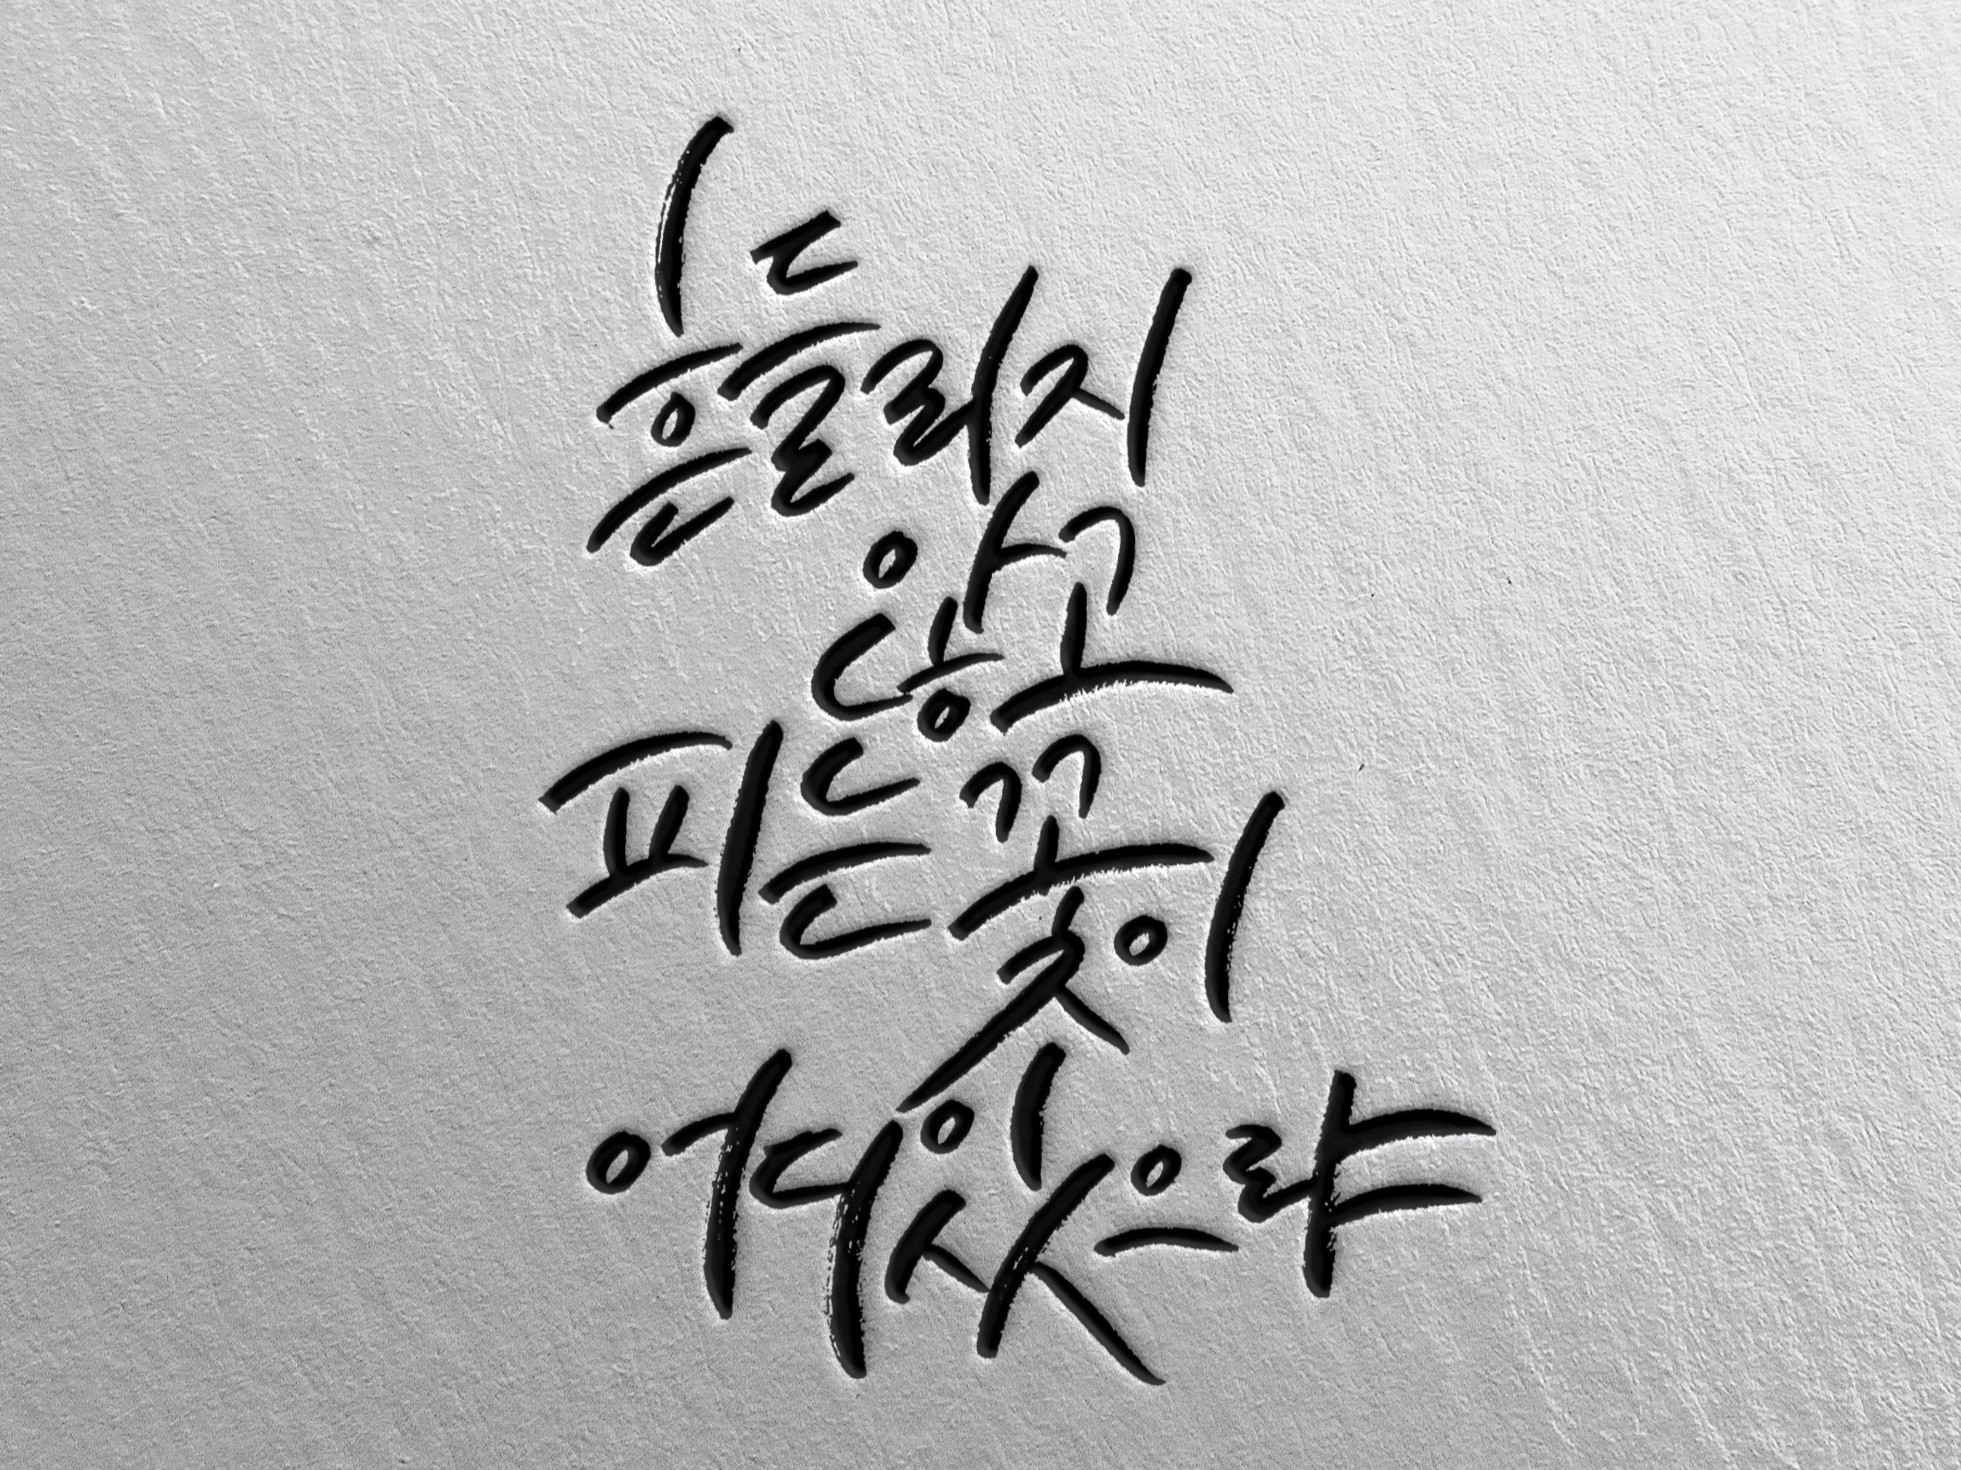 흔들리지
않고
피는 꽃이
어디 있으랴